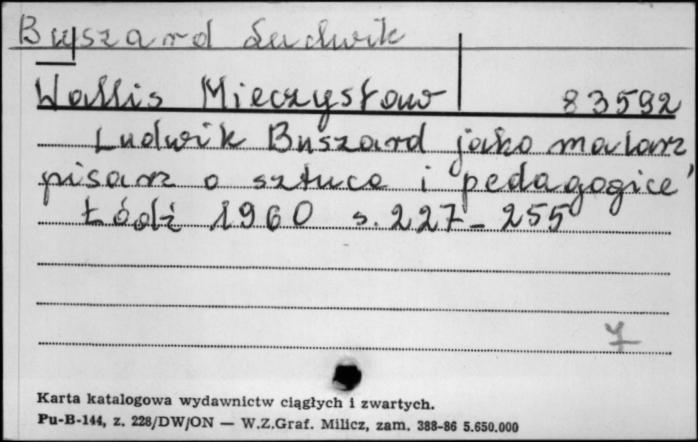 Buszard Ludwik
Wallis Mieczysław 83592
Ludwik Buszard jako malarz,
pisarz o sztuce i pedagogice
Łódź 1960 s. 227-255
7
Karta katalogowa wydawnictw ciągłych i zwartych.
Pu-B-144, z. 228/DW/ON — W.Z.Graf. Milicz, zam. 388-86 5.650.000